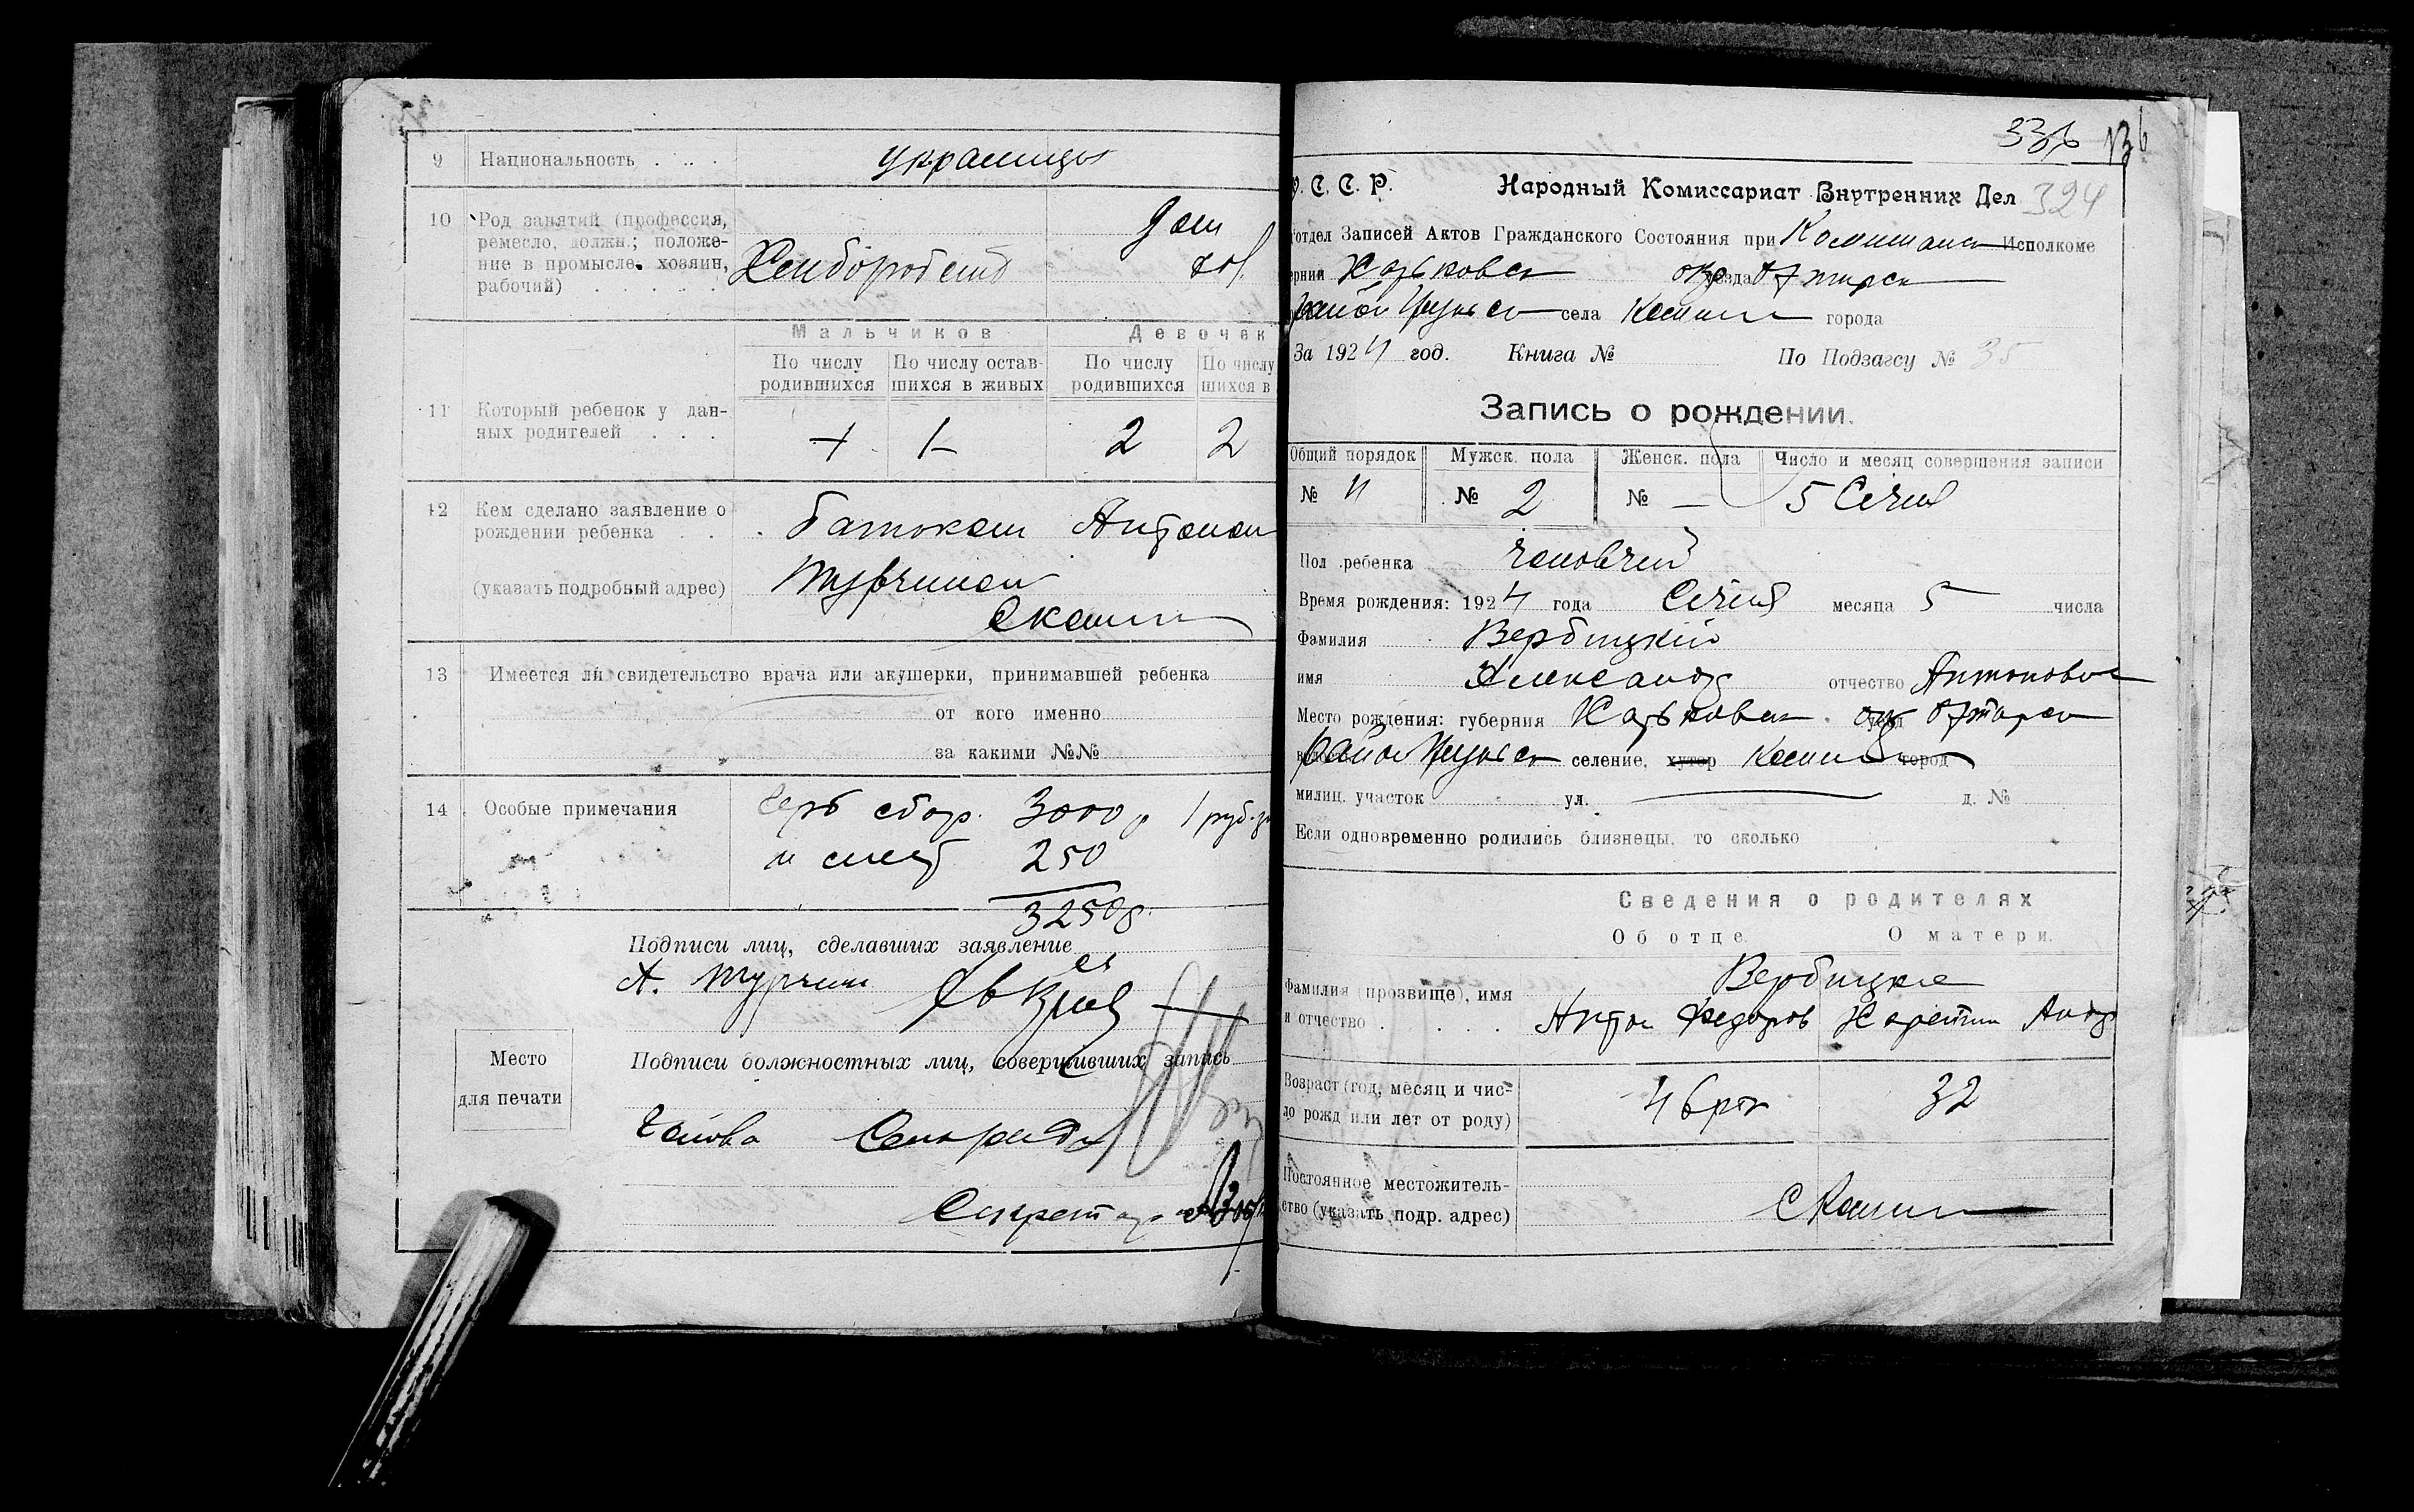 9 Национальность . . . украинцы
10 Род занятий (профессия,
ремесло, должн.; положе-
ние в промысле. хозяин,
рабочий) . . . . .
Хлібороб дом
Мальчиков Девочек
По числу По числу остав- По числу По числу
родившихся шихся в живых родившихся шихся в
11 Который ребенок у дан-
ных родителей . . .
2 2
12 Кем сделано заявление о
рождении ребенка . .
батьком Антоном
(указать подробный адрес)
Турчином
13 Имеется ли свидетельство врача или акушерки, принимавшей ребенка
от кого именно
за какими №№
14 Особые примечания
сбор. 3000 р 1 руб.
250
3250
Подписи лиц, сделавших заявление
А. Турчин
Место
для печати
Подписи должностных лиц, совершивших запись
Голова
Секретарь
336 136
У. С. С. Р. Народный Комиссариат Внутренних Дел 324
отдел Записей Актов Гражданского Состояния при Исполкоме
ернии Харьковск окр уезда Охтирск
район села города
За 1924 год. Книга № По Подзагсу № 35
Запись о рождении.
Общий порядок Мужск. пола Женск. пола Число и месяц совершения записи
№ 4 № 2 № — 5 Січня
Пол ребенка чоловічий
Время рождения: 1924 года Січня месяца 5 числа
Фамилия Вербицкий
имя Александр отчество Антонович
Место рождения: губерния Харьковск окр Охтирск
район селение, хутор город
милиц. участок ул. д. №
Если одновременно родились близнецы, то сколько
Сведения о родителях
Об отце. О матери.
Фамилия (прозвище), имя
и отчество . . . .
Вербицкие
Антон Федоров Харетин Андр
Возраст (год, месяц и чис-
ло рожд или лет от роду)
46 рок 32
Постоянное местожитель-
ство (указать подр. адрес)